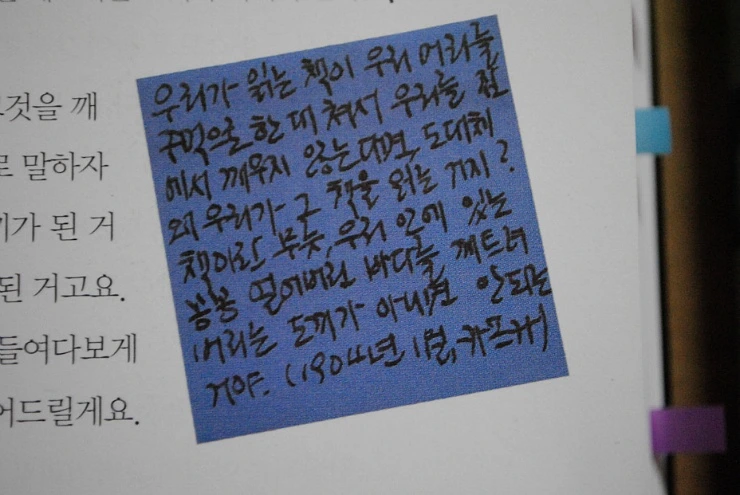 것을 깨
로 말하자
기가 된 거
된 거고요.
들여다보게
어드릴게요.
우리가 읽는 책이 우리 머리를
주먹으로 한 대 쳐서 우리를 잠
에서 깨우지 않는다면, 도대체
왜 우리가 그 책을 읽는 거지?
책이란 무릇, 우리 안에 있는
꽁꽁 얼어버린 바다를 깨트려
버리는 도끼가 아니면 안되는
거야. (1904년 1월, 카프카)